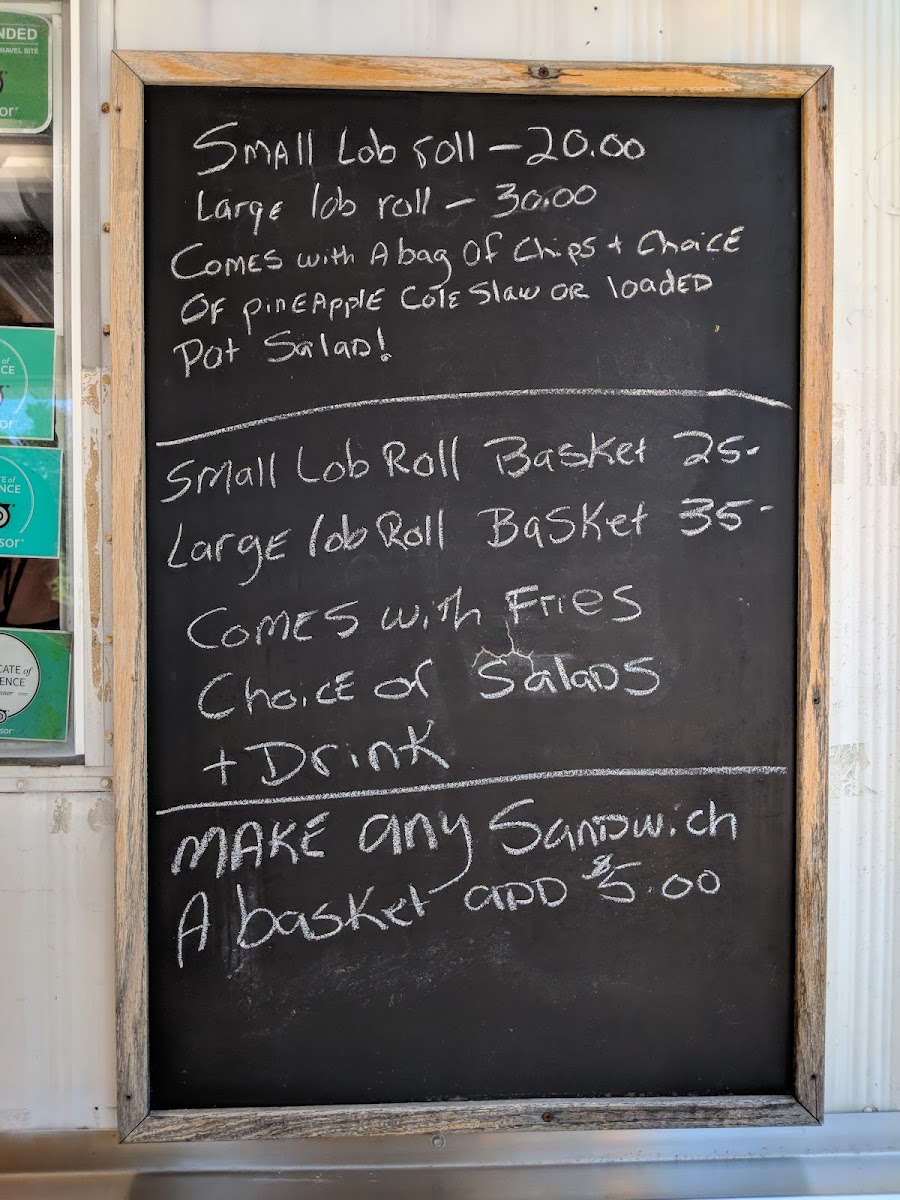 NDED
RAVEL SITE
or
SMAll Lob roll – 20.00
LargE lob roll – 30.00
COMES with A bag OF Chips + ChoicE
OF pinEApplE ColE Slaw OR loadED
Pot SalaD!
Small Lob Roll Basket 25-
LargE lob Roll BaSket 35-
COMES with FriES
ChoicE OF SalaDS
+ Drink
MAKE any SanDwich
A basket aDD $5.00
of
CE
or
TE of
NCE
sor
CATE of
ENCE
sor